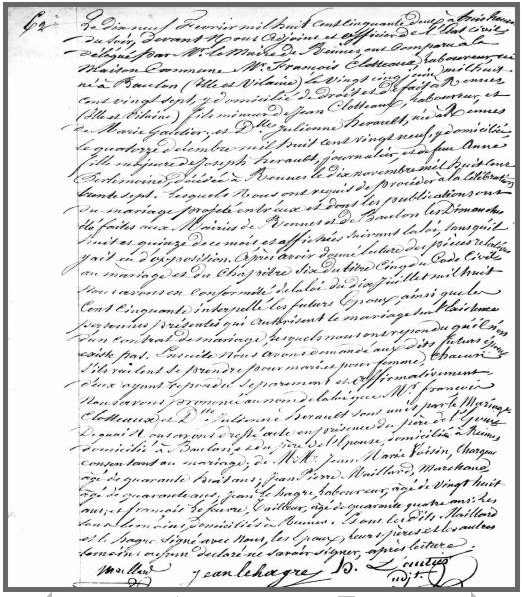 62
Le dix neuf février mil huit cent cinquante deux à trois heures
du soir, devant Nous adjoint et officier de l'Etat civil
délégué par Mr le Maire de Rennes ont comparu à la
maison Commune Mr François Clotteaux, laboureur, né
né à Baulon (Ille et Vilaine) le vingt cinq juin mil huit
cent vingt sept, y domicilié de Droit et de fait à Rennes
(Ille et Vilaine) fils mineur de Jean Clotteaux, laboureur, et
de Marie Gautier, et Dlle Julienne Herault, née à Rennes
le quatorze décembre mil huit cent vingt neuf, y domiciliée
fille majeure de Joseph Herault, journalier, et de feu Anne
décédée à Rennes le dix novembre mil huit cent
trente sept. Lesquels Nous ont requis de procéder à la célébration
du mariage projeté entr'eux et dont les publications ont
été faites aux Mairies de Rennes et de Baulon les Dimanches
huit et quinze de ce mois et affichées suivant la loi, sans qu'il
fait d'opposition. Après avoir donné lecture des pièces relatives
au mariage et du Chapitre Six du titre Cinq du Code Civil
Nous avons en conformité de la loi du dix juillet mil huit
Cent Cinquante interpellé les futurs Epoux ainsi que les
personnes présentes qui autorisent le mariage sur l'existence
d'un contrat de mariage, lesquels nous ont répondu qu'il n'en
existe pas. Ensuite Nous avons demandé aux dits futurs époux
s'ils veulent se prendre pour mari et pour femme, chacun
d'eux ayant répondu séparément et affirmativement
Nous avons prononcé au nom de la loi que Mr François
Clotteaux et Dlle Julienne Herault sont unis par le Mariage
De quoi Nous avons dressé acte en présence du père de l'Epoux
domicilié à Baulon, et du père de l'Epouse, domicilié à Rennes
consentant au mariage, de MM. Jean Marie Voisin,
âgé de quarante huit ans, Jean Pierre Maillard, Marchand
âgé de quarante ans, Jean Lehagre laboureur, âgé de vingt huit
ans, et François Lefeuvre, tailleur, âgé de quarante quatre ans. Les
témoins, domiciliés à Rennes. Et ont les dits Maillard
et Lehagre signé avec Nous, les Epoux, leurs pères et les autres
témoins ont déclaré ne savoir signer, après lecture.
Maillard Jeanlehagre
adjt